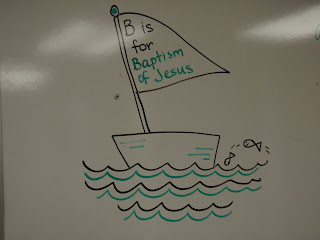 B is
for
Baptism
of Jesus